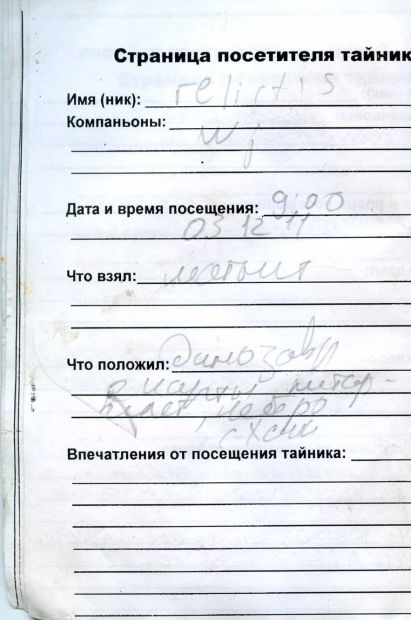 Страница посетителя тайник
Имя (ник): relict's
Компаньоны:
Дата и время посещения: 9:00
03 12 11
Что взял:
Что положил: динозавр
карты
Впечатления от посещения тайника: